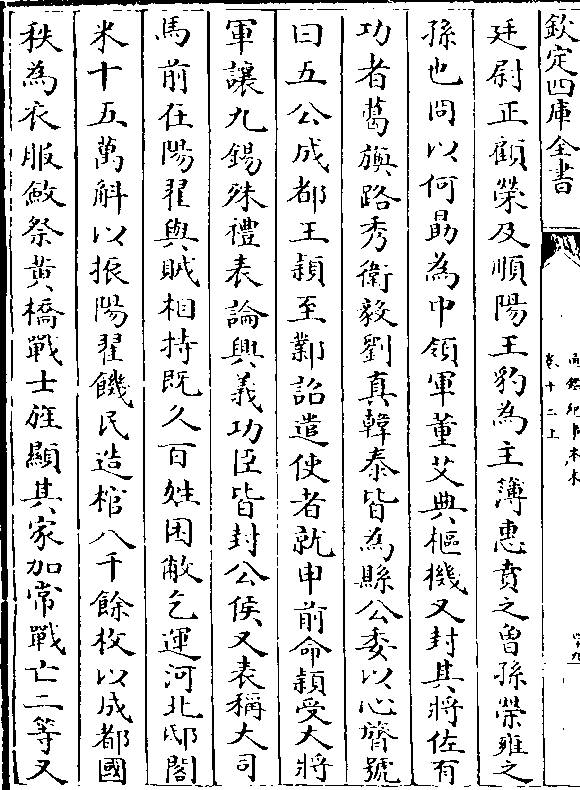 欽定四庫全書
卷十二上
廷尉正顧榮及順陽王豹為主簿惠賁之曾孫榮雍之
孫也冏以何勗為中領軍董艾典樞機又封其將佐有
功者葛旟路秀衛毅劉真韓泰皆為縣公委以心膂號
曰五公成都王穎至鄴詔遣使者就申前命穎受大將
軍讓九錫殊禮表論興義功臣皆封公侯又表稱大司
馬前在陽翟與賊相持既久百姓困敝乞運河北邸閣
米十五萬斛以振陽翟饑民造棺八千餘枚以成都國
秩為衣服斂祭黃橋戰士旌顯其家加常戰亡二等又